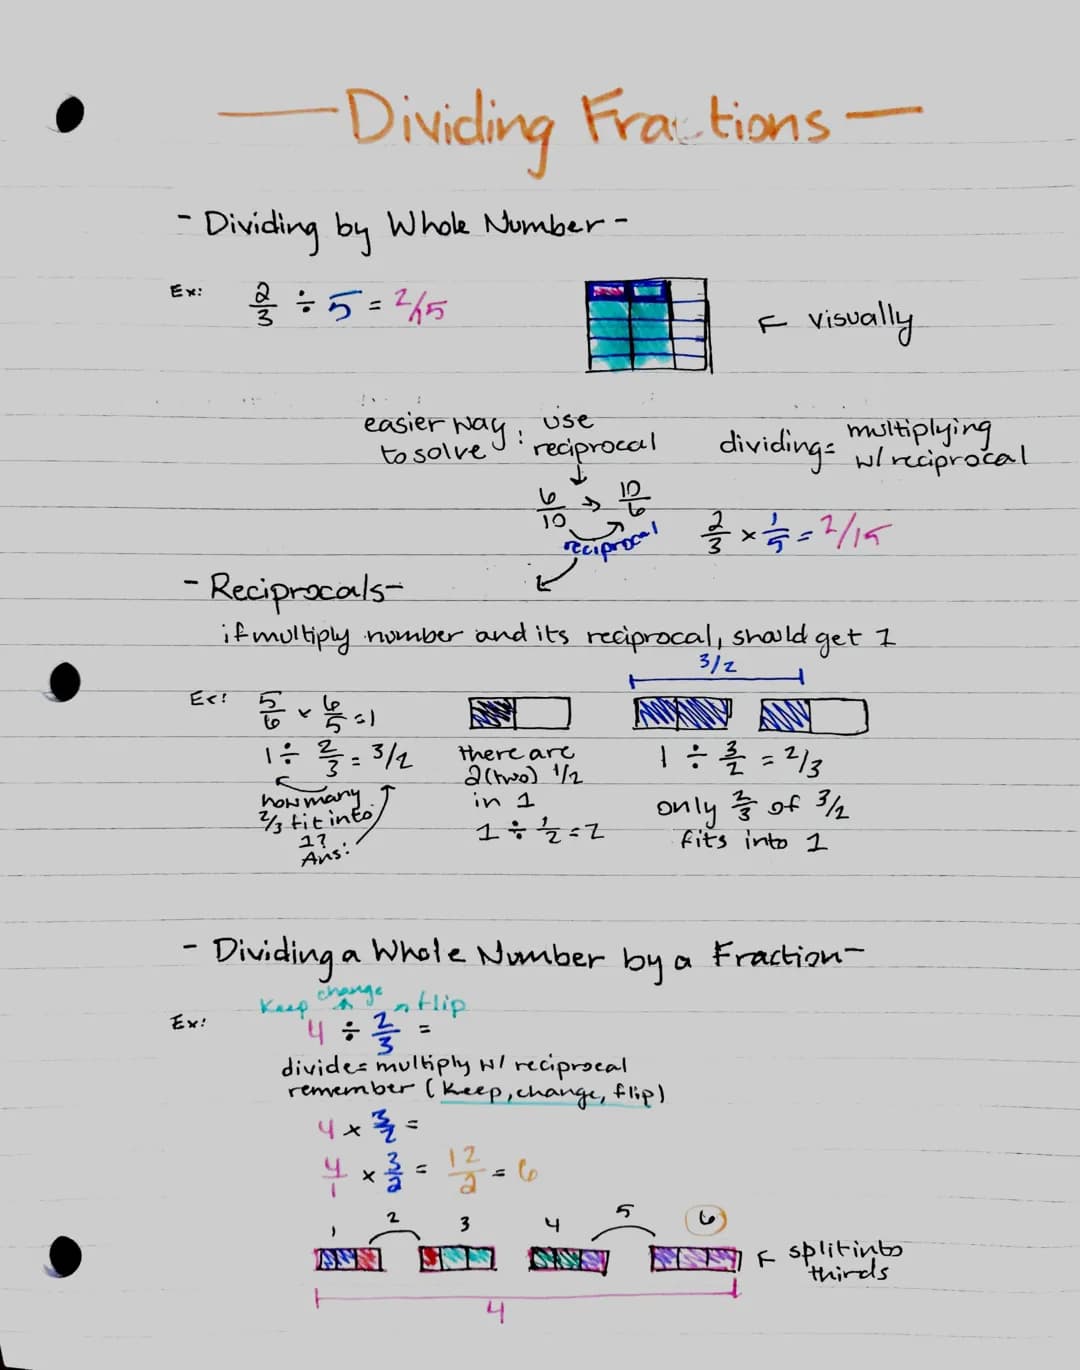 — Dividing Fractions —
- Dividing by Whole Number -
Ex: 2/3 ÷ 5 = 2/15
← visually
easier way to solve : use reciprocal
dividing = multiplying w/ reciprocal
6/10 → 10/6
reciprocal
2/3 × 1/5 = 2/15
- Reciprocals -
if multiply number and its reciprocal, should get 1
3/2
Ex: 5/6 × 6/5 = 1
1 ÷ 2/3 = 3/2
how many
2/3 fit into
1?
Ans:
there are
2 (two) 1/2
in 1
1 ÷ 1/2 = 2
1 ÷ 3/2 = 2/3
only 2/3 of 3/2
fits into 1
- Dividing a Whole Number by a Fraction -
Keep change flip
Ex: 4 ÷ 2/3 =
divide = multiply w/ reciprocal
remember (keep, change, flip)
4 × 3/2 =
4/1 × 3/2 = 12/2 = 6
1 2 3 4 5 6
← split into
thirds
4